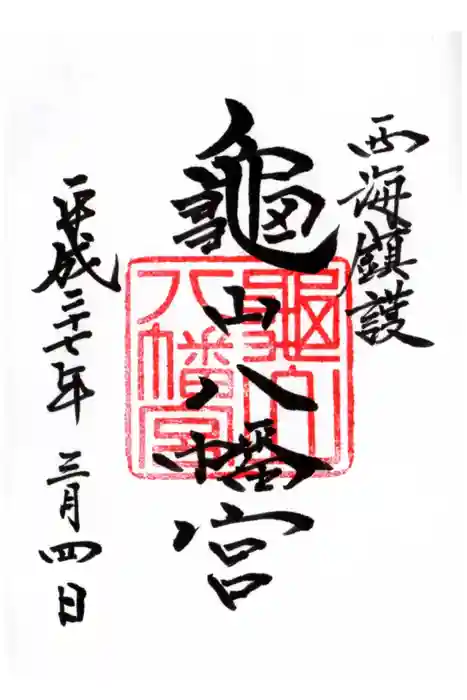 西海鎮護
龜山八幡宮
平成二十七年 三月四日
龜山八幡宮